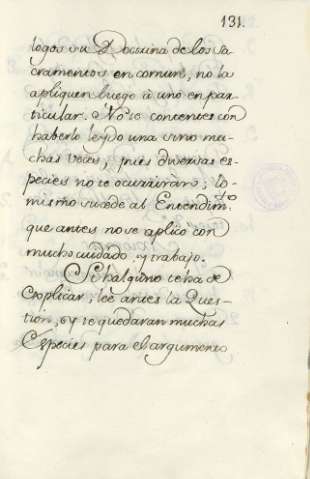 131.
logos su Doctrina de los Sa
cramentos en comun, no la
apliquen luego à uno en par
ticular. No te contentes con
haberlo leydo una sino mu-
chas veces, pues diversas es-
pecies no te ocurriràn; lo
mismo sucede al Entendim.to
que antes no se aplicò con
mucho cuidado y trabajo.
Si halguno te ha de
explicar, leè antes la Ques-
tion, y te quedaran muchas
Especies para el argumento